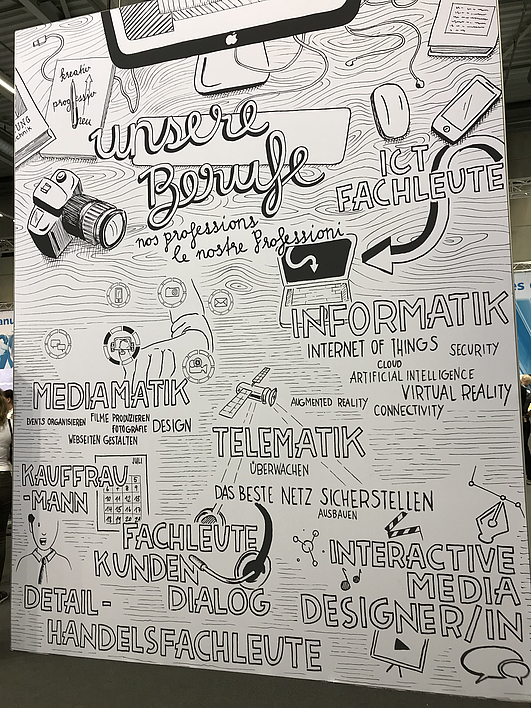 kreativ
progressiv
neu
UNG
unsere
Berufe
nos professions
le nostre Professioni
ICT
FACHLEUTE
INFORMATIK
INTERNET OF THINGS
SECURITY
CLOUD
ARTIFICIAL INTELLIGENCE
VIRTUAL REALITY
AUGMENTED REALITY
CONNECTIVITY
MEDIAMATIK
EVENTS ORGANISIEREN
FILME PRODUZIEREN
FOTOGRAFIE
DESIGN
WEBSEITEN GESTALTEN
TELEMATIK
ÜBERWACHEN
DAS BESTE NETZ SICHERSTELLEN
AUSBAUEN
KAUFFRAU
-MANN
JULI
FACHLEUTE
KUNDEN
DIALOG
INTERACTIVE
MEDIA
DESIGNER/IN
DETAIL-
HANDELSFACHLEUTE